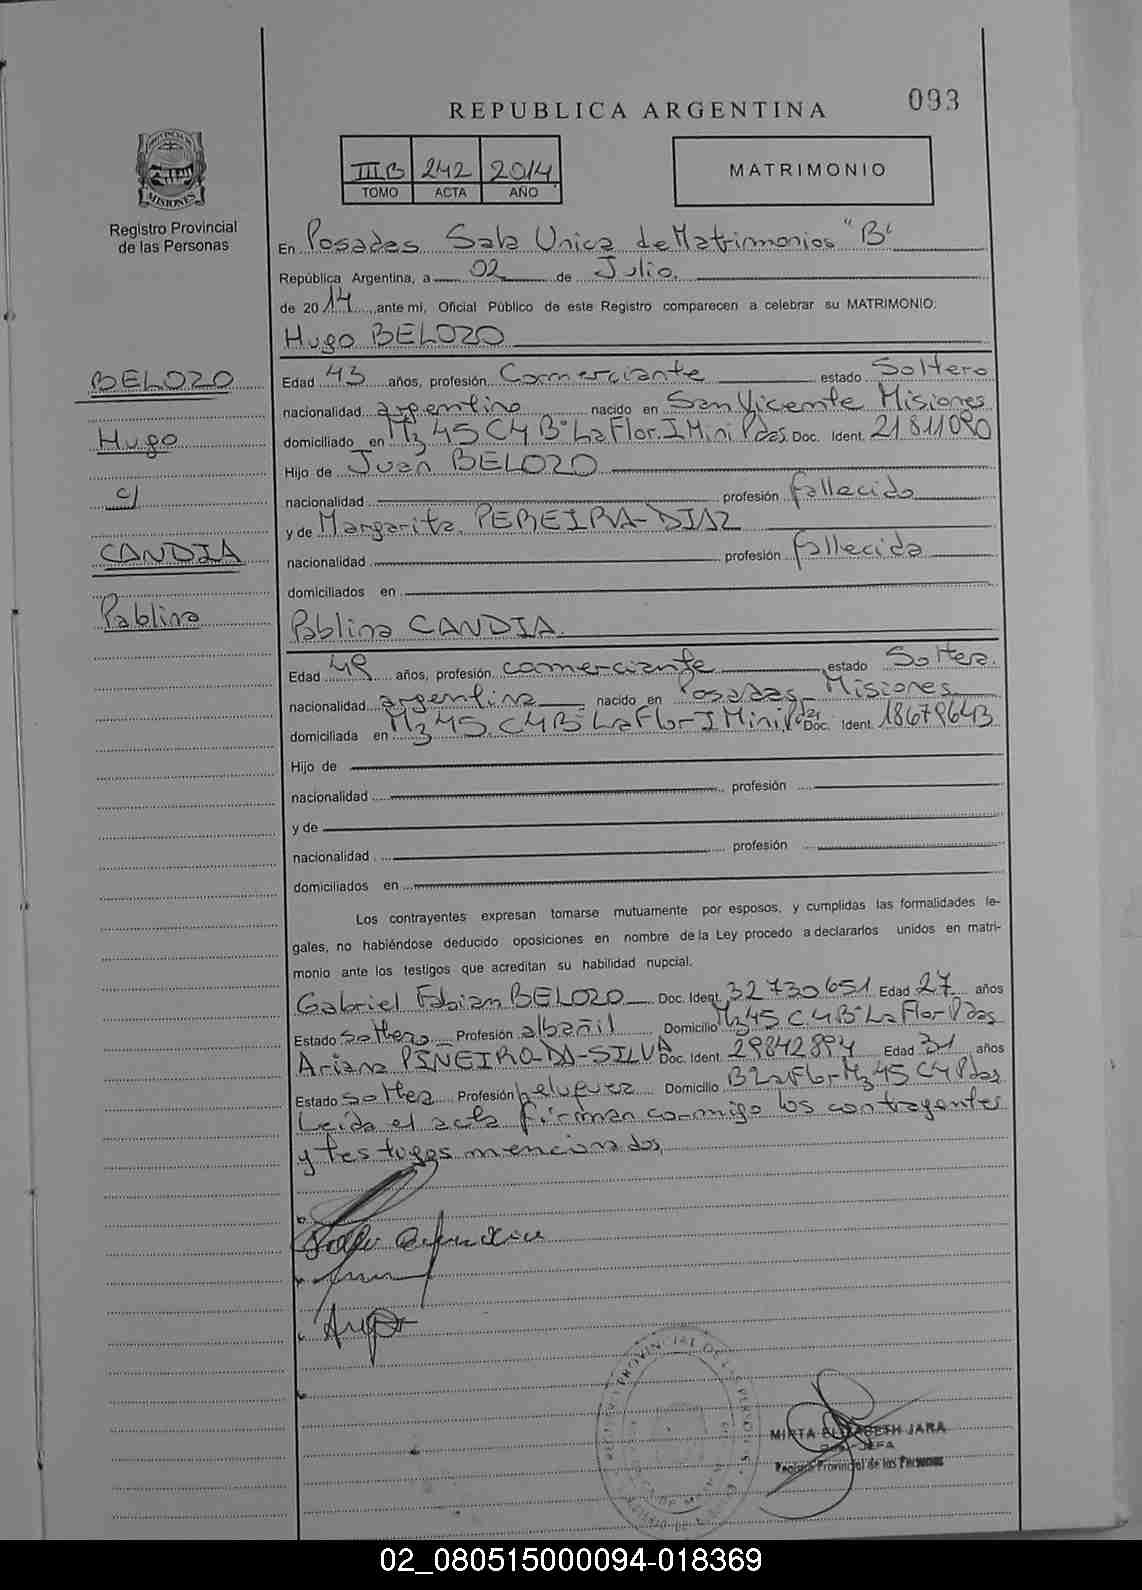 093
REPUBLICA ARGENTINA
PROVINCIA
MISIONES
Registro Provincial
de las Personas
III B 242 2014
TOMO ACTA AÑO
MATRIMONIO
En Posadas Sala Unica de Matrimonios "B"
República Argentina, a 02 de Julio
de 2014 ante mi, Oficial Público de este Registro comparecen a celebrar su MATRIMONIO:
Hugo BELOZO
BELOZO
Hugo
c/
CANDIA
Pablina
Edad 43 años, profesión Comerciante estado Soltero
nacionalidad argentino nacido en San Vicente Misiones
domiciliado en Mz 45 C4 Bº La Flor I Mini Pdas. Doc. Ident. 21811090
Hijo de Juan BELOZO
nacionalidad profesión fallecido
y de Margarita PEREIRA-DIAZ
nacionalidad profesión fallecida
domiciliados en
Pablina CANDIA
Edad 49 años, profesión comerciante estado Soltera
nacionalidad argentina nacido en Posadas Misiones
domiciliada en Mz 45 C4 Bº La Flor I Mini Pdas Doc. Ident. 18679643
Hijo de
nacionalidad profesión
y de
nacionalidad profesión
domiciliados en
Los contrayentes expresan tomarse mutuamente por esposos, y cumplidas las formalidades le-
gales, no habiéndose deducido oposiciones en nombre de la Ley procedo a declararlos unidos en matri-
monio ante los testigos que acreditan su habilidad nupcial.
Gabriel Fabian BELOZO Doc. Ident. 32730651 Edad 27 años
Estado soltero Profesión albañil Domicilio Mz 45 C4 Bº La Flor Pdas
Ariana PIÑEIRO-DA-SILVA Doc. Ident. 29842894 Edad 31 años
Estado soltera Profesión peluquera Domicilio B La Flor Mz 45 C4 Pdas
Leida el acta firman conmigo los contrayentes
y testigos mencionados,
MIRTA ELIZABETH JARA
JEFA
Registro Provincial de las Personas
02_080515000094-018369